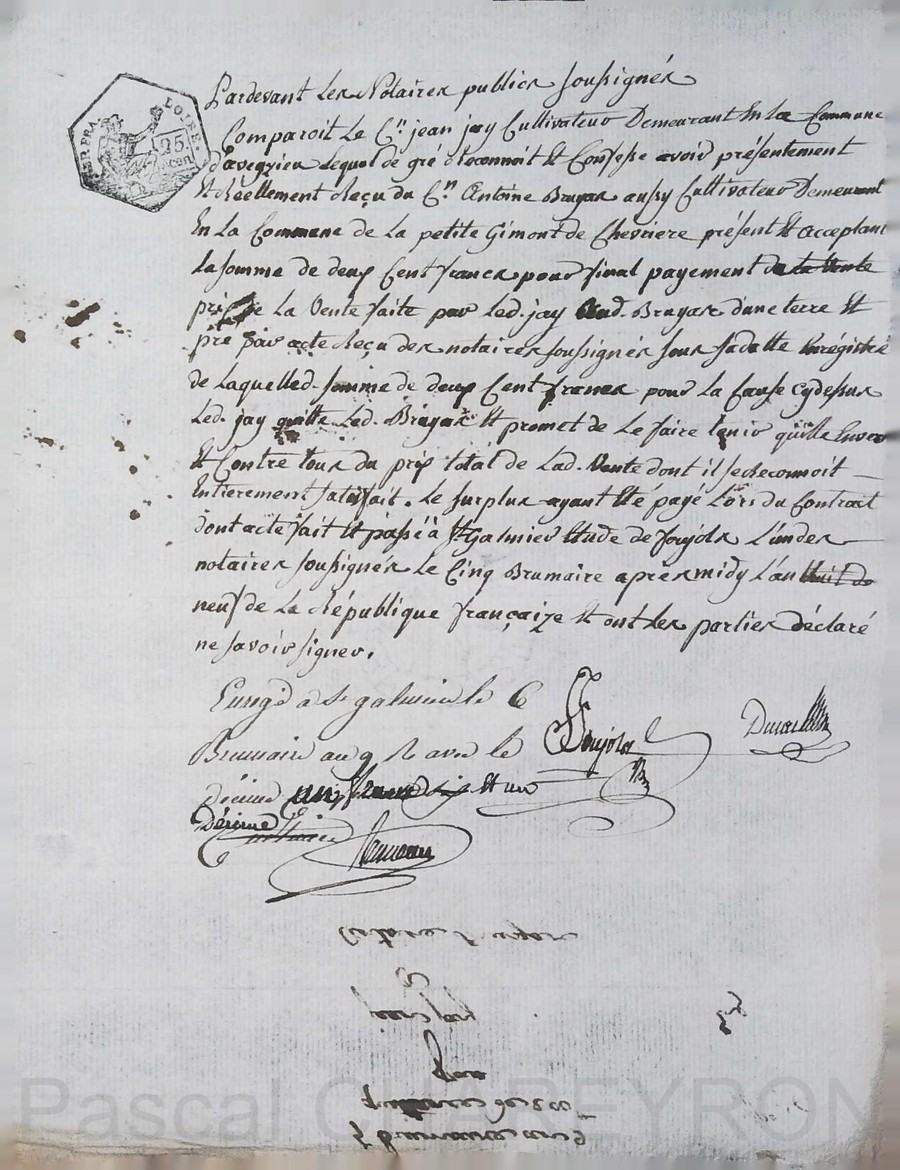 Pardevant Les Notaires publics soussignés
Comparoit Le C.en jean jay Cultivateur Demeurant En La Commune
d'aveyzieu Lequel de gré Reconnoit Et Confesse avoir présentement
Et Réellement Reçu du C.en Antoine Bruyas aussy Cultivateur Demeurant
En La Commune de La petite Gimond de Chevriere présent Et acceptant
La somme de deux Cent francs pour final payement de la Vente
prix de La Vente faite par Led. jay Aud. Bruyas dune terre Et
pré par acte Reçu des notaires soussignés sous sa datte Enrégistré
de Laquelle d. somme de deux Cent francs pour La Cause cydessus
Led. jay quitte Led. Bruyas Et promet de Le faire tenir quitte Envers
Et Contre tous du prix total de Lad. Vente dont il se Reconnoit
Entierement satisfait. Le surplus ayant Eté payé Lors du Contrat
dont acte fait Et passé à St Galmier Etude de Soujols L'un des
notaires soussignés Le Cinq Brumaire apres midy L'an huit de
neuf de La République françaize Et ont Les parties déclaré
ne savoir signer.
Enregé a St galmier le 6
Brumaire an 9 R avec le
Soujols
décime un franc dix Et un
Décime
125
LOIRE
quittance de 200
5 Brumaire an 9
Par
jean jay
A
Antoine Bruyas
Pascal CHABEYRON